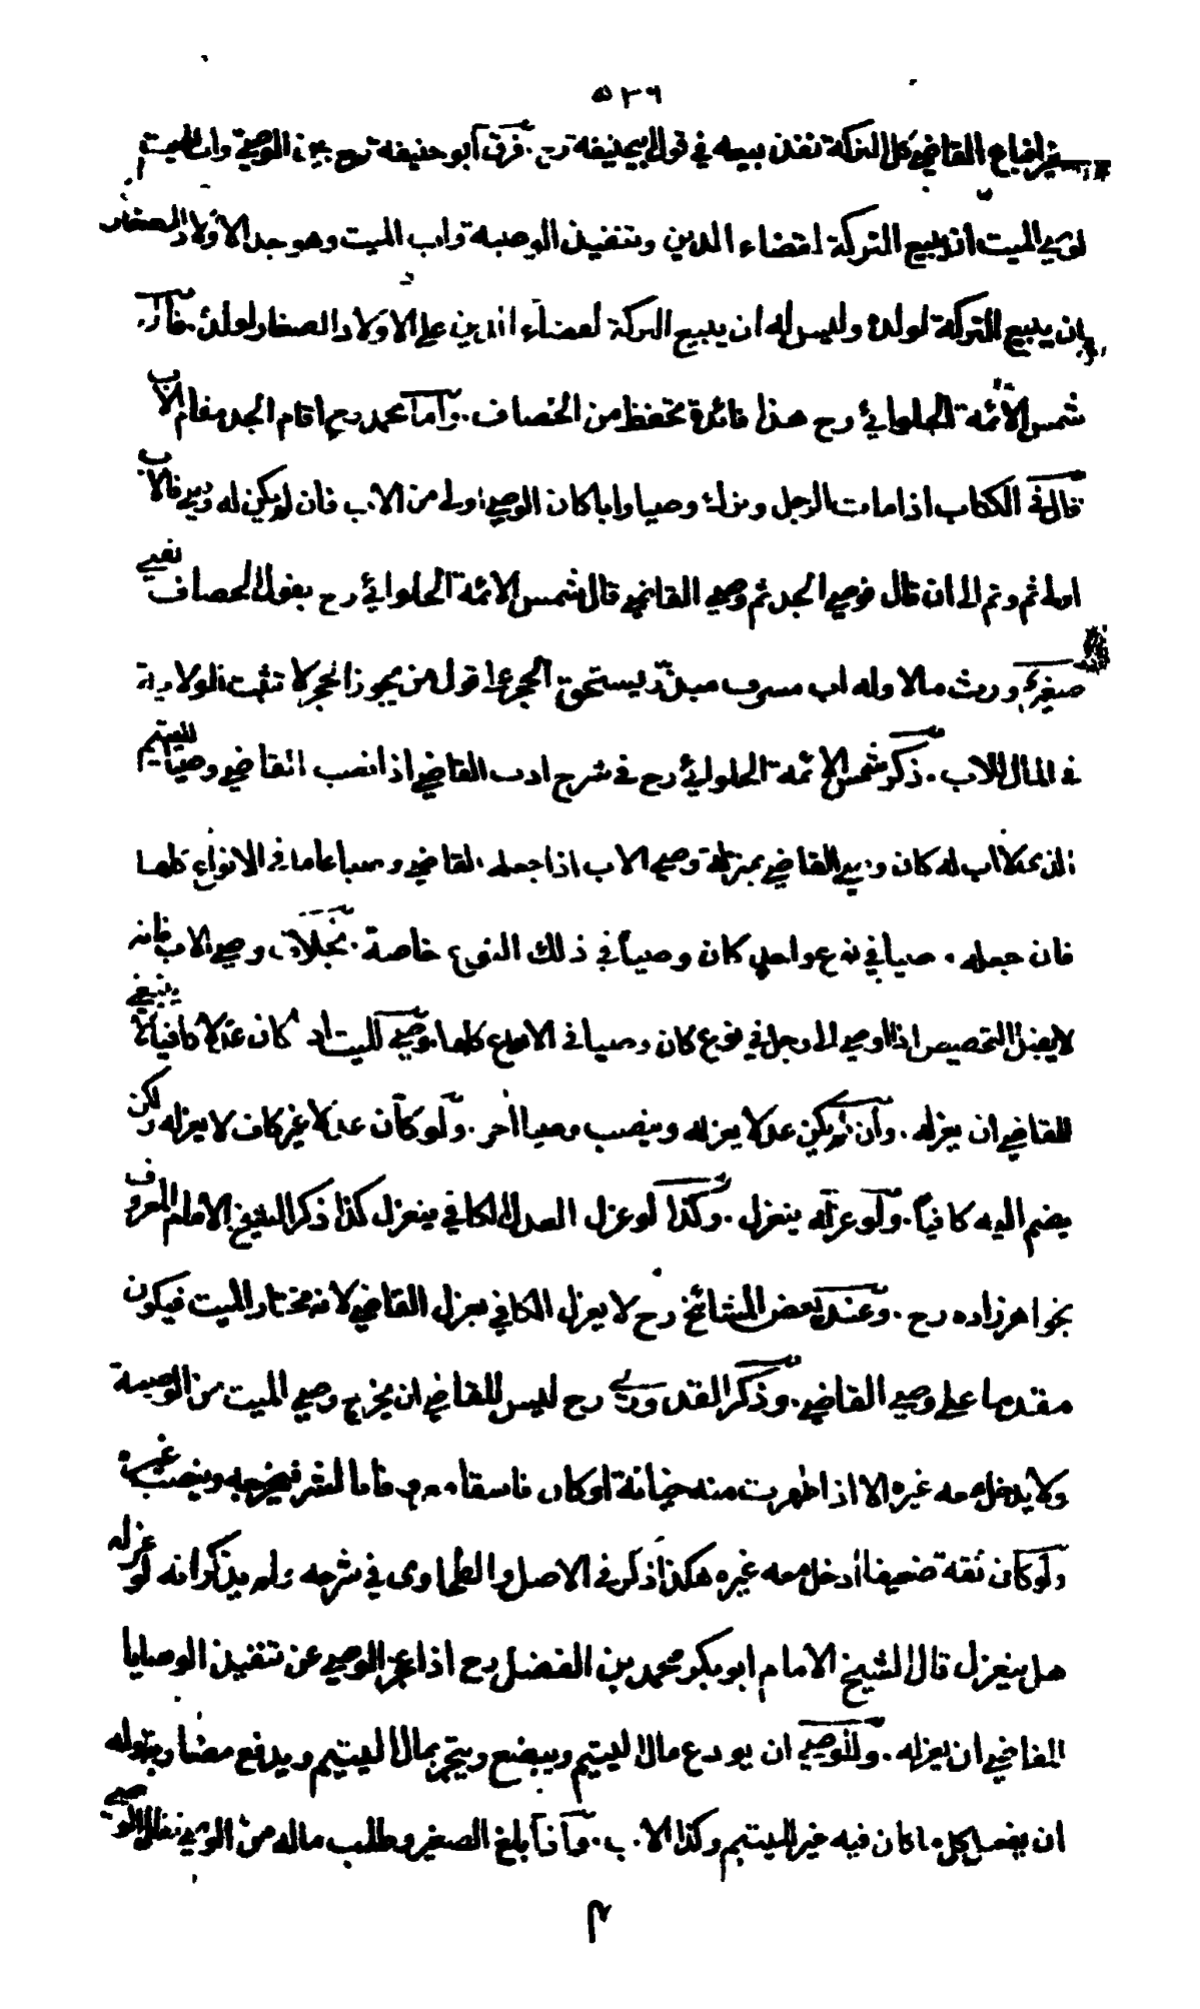 ٥٢٦
فباع القاضي كل التركة نفذ بيعه في قول ابيحنيفه رح. فرق ابو حنيفه رح بين الوصي واب الميت
لوصي الميت ان يبيع التركة لقضاء الدين وتنفيذ الوصية واب الميت وهو جد الاولاد الصغار
ان يبيع التركة لولده وليس له ان يبيع التركة لقضاء الدين على الاولاد الصغار لولده. قال
شمس الأئمة الحلوائي رح هذا فائدة تحفظ من الخصاف. واما محمد رح اقام الجد مقام الاب
قال في الكتاب اذا مات الرجل وترك وصيا وابا كان الوصي اولى من الاب فان لم يكن له وصي فالاب
اولى ثم وثم الى ان قال فوصي الجد ثم وصي القاضي قال شمس الائمة الحلوائي رح بقول الخصاف نفتي
صغير ورث مالا وله اب مسرف مبذر يستحق الحجر على قول من يجوز الحجر لا تثبت الولاية
في المال للاب. ذكر شمس الائمة الحلوائي رح في شرح ادب القاضي اذا نصب القاضي وصيا لليتيم
الذي لا اب له كان وصي القاضي بمنزلة وصي الاب اذا جعله القاضي وصيا عاما في الانواع كلها
فان جعله وصيا في نوع واحد كان وصيا في ذلك النوع خاصة. بخلاف وصي الاب فانه
لا يقبل التخصيص اذا اوصى الى رجل في نوع كان وصيا في الانواع كلها. وصي الميت اذا كان عدلا كافيا لا ينبغي
للقاضي ان يعزله. وان لم يكن عدلا يعزله وينصب وصيا آخر. ولو كان عدلا غير كاف لا يعزله ولكن
يضم اليه كافيا. ولو عزله ينعزل. وكذا لو عزل العدل الكافي ينعزل كذا ذكر الشيخ الامام المعروف
بخواهرزاده رح. وعند بعض المشائخ رح لا يعزل الكافي بعزل القاضي لانه مختار الميت فيكون
مقدما على وصي القاضي. وذكر القدوري رح ليس للقاضي ان يخرج وصي الميت من الوصية
ولا يدخل معه غيره الا اذا ظهرت منه خيانة او كان فاسقا معروفا بالشر فيخرجه وينصب غيره
ولو كان ثقة ضعيفا ادخل معه غيره هكذا ذكر في الاصل والطحاوي في شرحه ولم يذكر انه لو عزله
هل ينعزل قال الشيخ الامام ابو بكر محمد بن الفضل رح اذا عجز الوصي عن تنفيذ الوصايا
للقاضي ان يعزله. وللوصي ان يودع مال اليتيم ويبضع ويتجر بمال اليتيم ويدفع مضاربة وله
ان يفعل كل ما كان فيه خير لليتيم وكذا الاب. واذا بلغ الصغير وطلب ماله من الوصي فقال الوصي